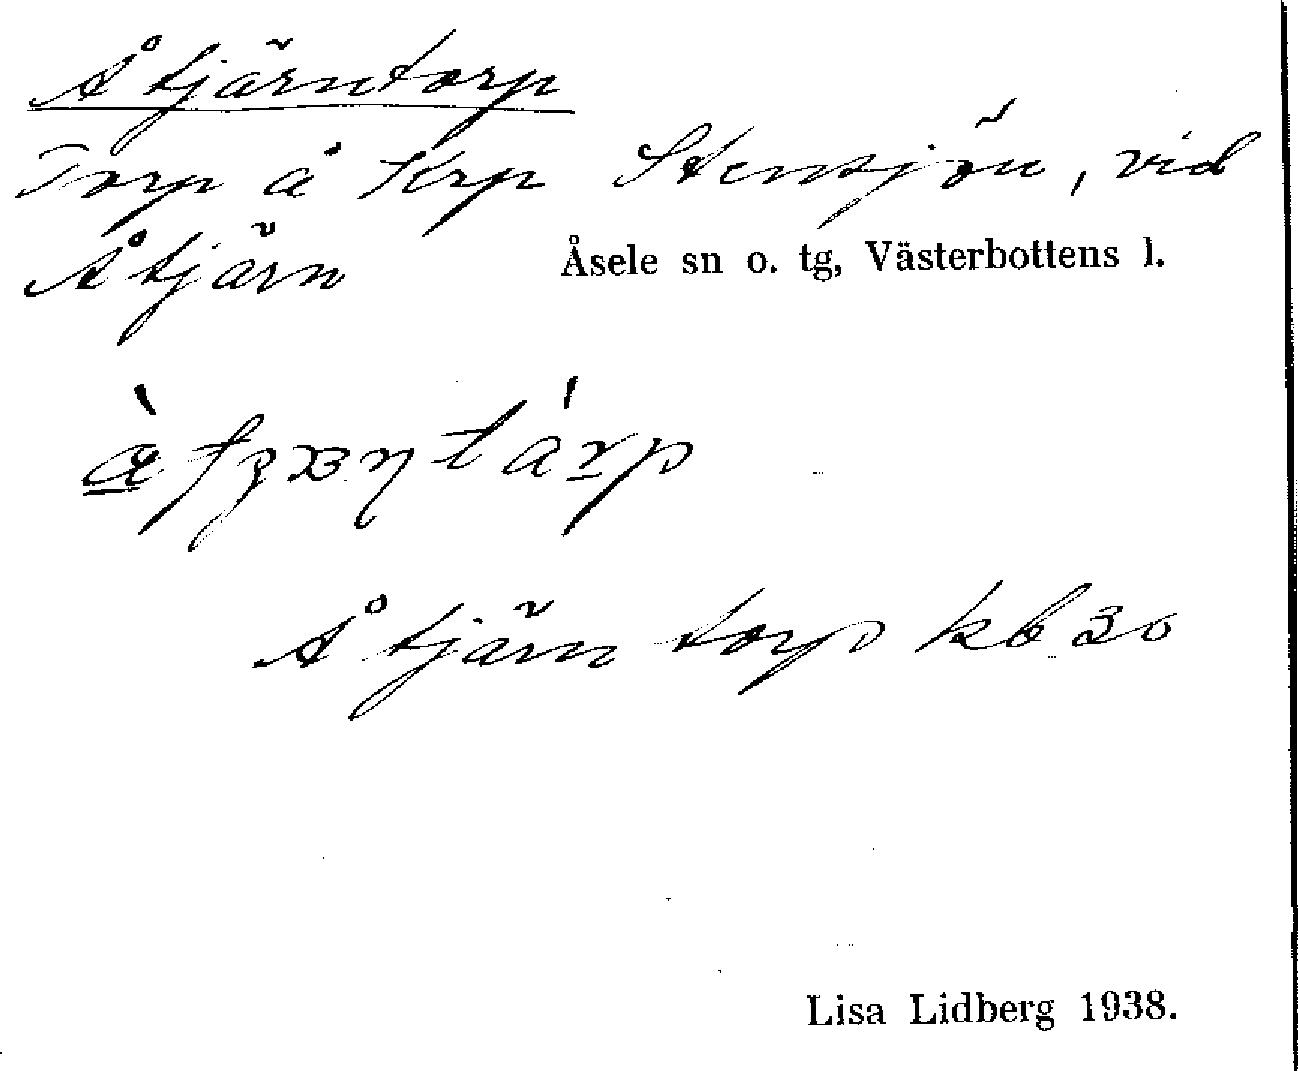 Åtjärntorp
Torp å Krp Stensjön, vid
Åtjärn
Åsele sn o. tg, Västerbottens l.
Åtjärn torp kb 30
Lisa Lidberg 1938.